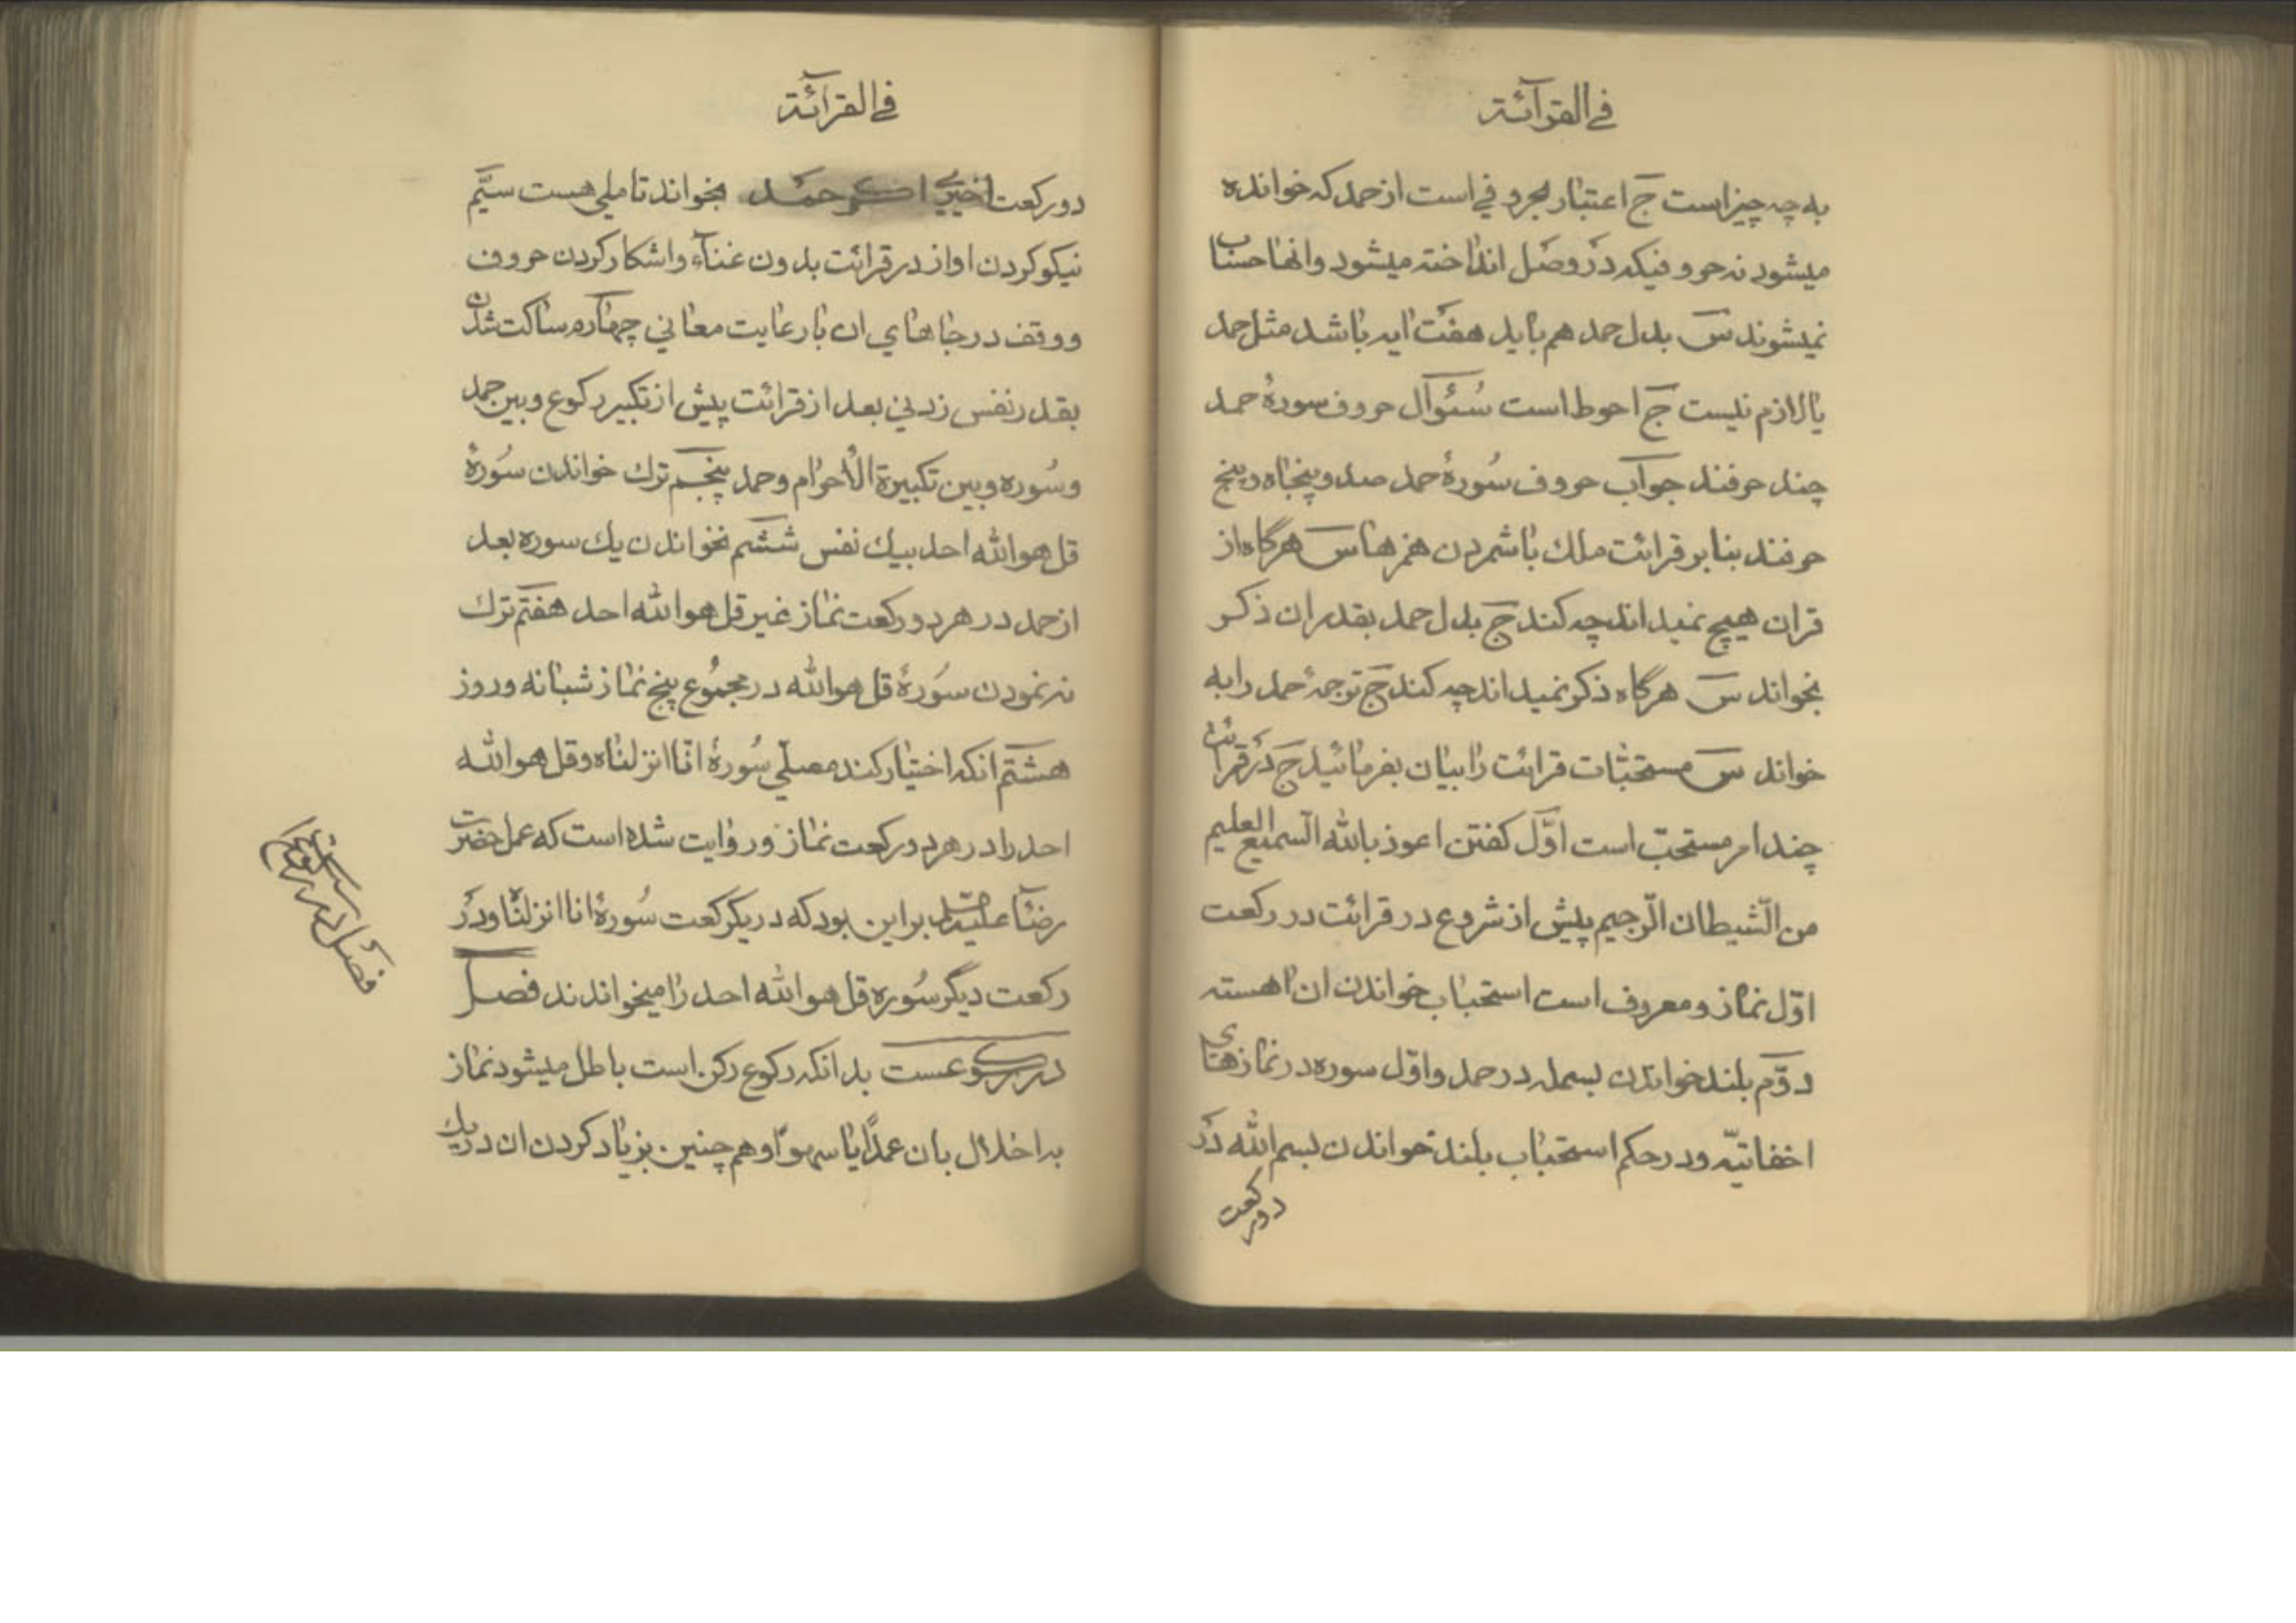 في القرآئة
به چه چیز است جَ اعتبار بحروفی است از حمد که خوانده
میشود نه حروفیکه در وصل انداخته میشود وانها حساب
نمیشوند سَ بدل حمد هم باید هفت ایه باشد مثل حمد
یا لازم نیست جَ احوط است سُئوآل حروف سورۀ حمد
چند حرفند جوآب حروف سُورۀ حمد صد و پنجاه و پنج
حرفند بنا بر قرائت ملك با شمردن همزها سَ هرگاه از
قران هیچ نمیداند چه کند جَ بدل حمد بقدر ان ذکر
بخواند سَ هرگاه ذکر نمیداند چه کند جَ ترجمۀ حمد را به
خواند سَ مستحبّات قرائت را بیان بفرمائید جَ در قرائت
چند امر مستحبّ است اوّل کفتن اعوذ بالله السّمیع العلیم
من الشّیطان الرّجیم پیش از شروع در قرائت در رکعت
اوّل نماز و معروف است استحباب خواندن ان اهسته
دوّم بلند خواندن بسمله در حمد و اوّل سوره در نمازهای
اخفاتیّه و در حکم استحباب بلند خواندن بسم الله در
دورکعت
في القرآئة
دو رکعت اخیر اکر حمد بخواند تاملی هست سیّم
نیکو کردن اواز در قرائت بدون غنآء واشکار کردن حروف
ووقف در جاهای ان با رعایت معانی چهآرم ساکت شدن
بقدر نفس زدنی بعد از قرائت پیش از تکبیر رکوع وبین حمد
وسُوره وبین تکبیرة الأحرام وحمد پنجم ترك خواندن سُورۀ
قل هو الله احد بیك نفس ششم نخواندن یك سوره بعد
از حمد در هر دو رکعت نماز غیر قل هو الله احد هفتم ترك
نه نمودن سُورۀ قل هو الله در مجموُع پنج نماز شبانه وروز
هشتم انکه اختیار کند مصلّی سُورۀ انّا انزلناه وقل هو الله
احد را در هر دو رکعت نماز وروایت شده است که عمل حضرت
رضا علیه بر این بود که در یکرکعت سُورۀ انا انزلناه ودر
رکعت دیگر سُوره قل هو الله احد را میخواندند فصل
در رکوعست بدانکه رکوع رکن است باطل میشود نماز
به اخلال بان عمداً یا سهواً وهم چنین بزیاد کردن ان در یك
فصل در رکوع